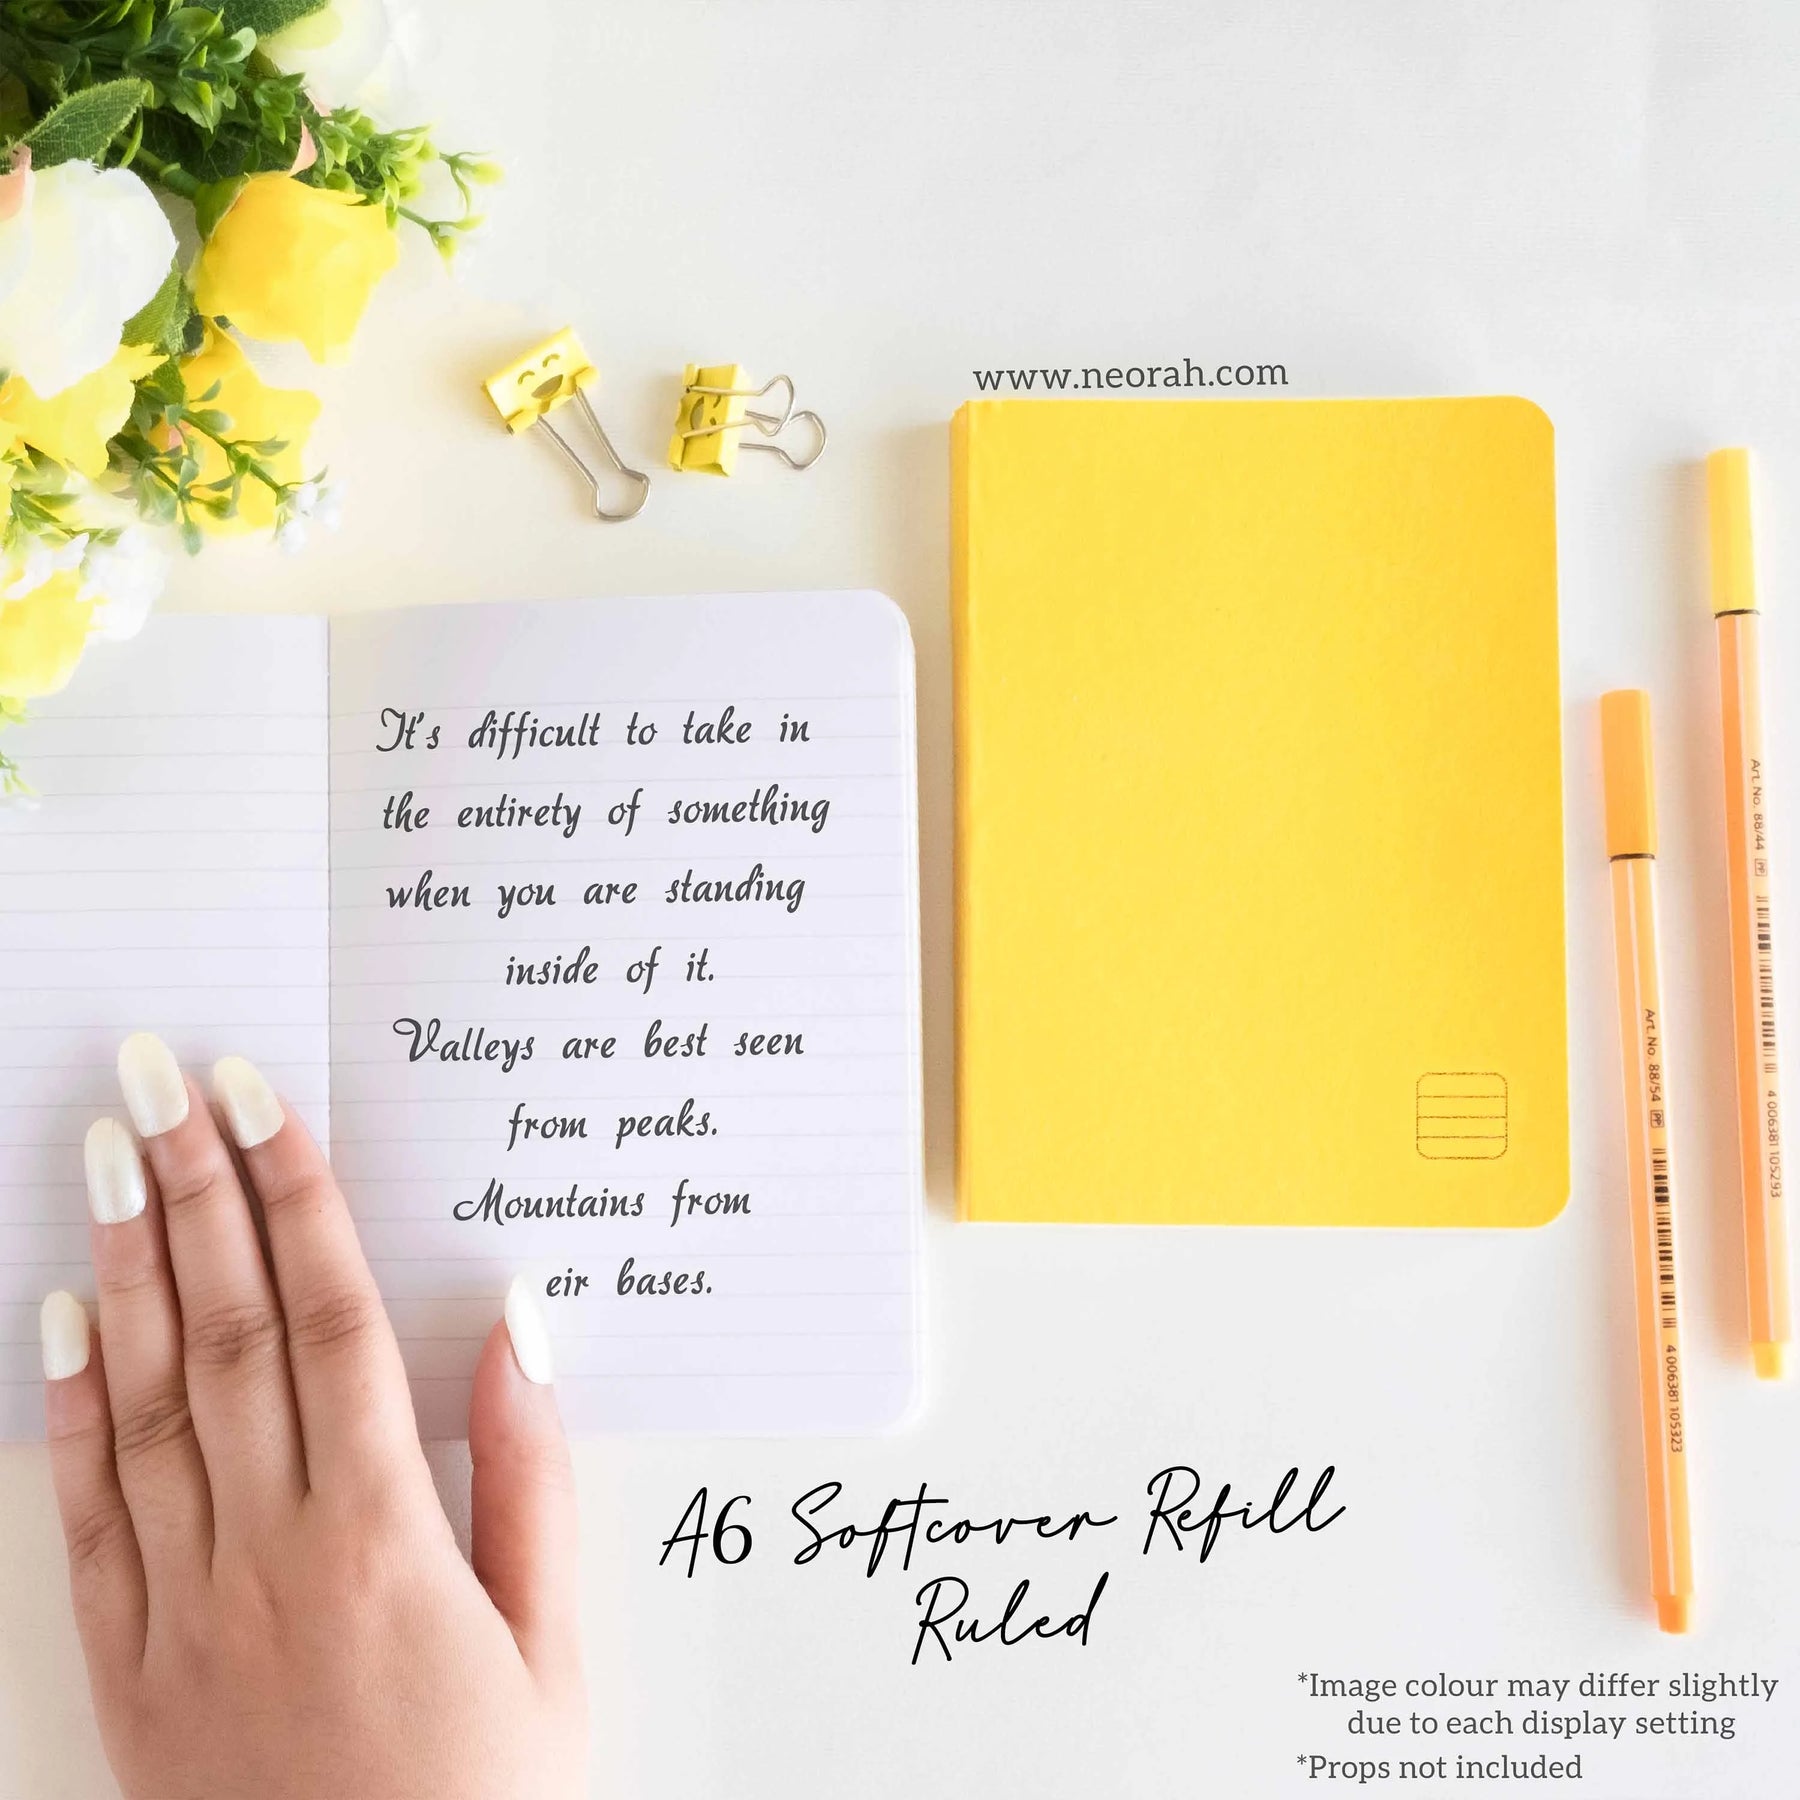 www.neorah.com
It's difficult to take in
the entirety of something
when you are standing
inside of it.
Valleys are best seen
from peaks.
Mountains from
eir bases.
Art. No. 88/44 PP
4 006381 105293
Art. No. 88/54 PP
4 006381 105323
A6 Softcover Refill
Ruled
*Image colour may differ slightly
due to each display setting
*Props not included